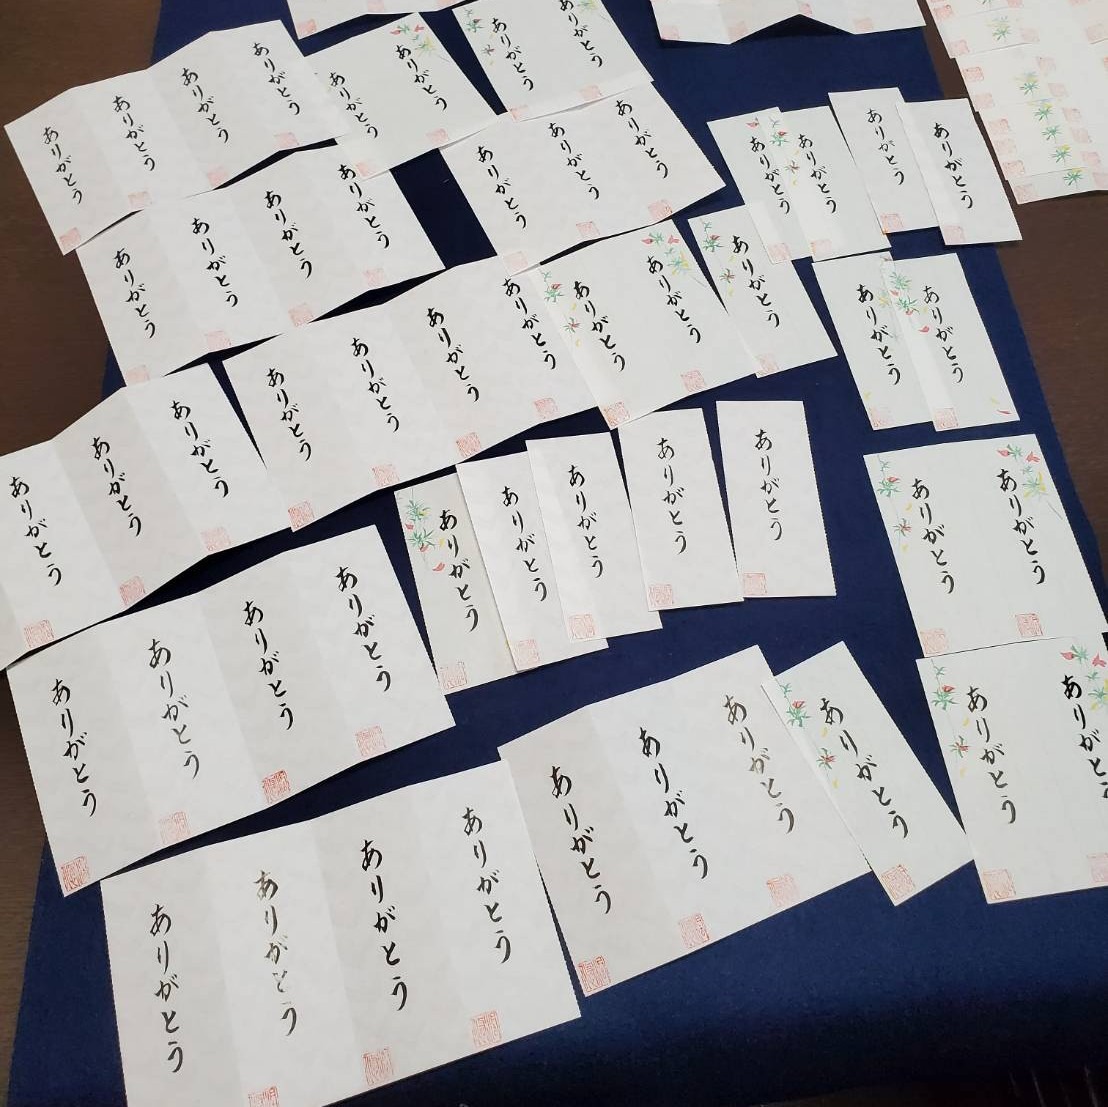 ありがとう
ありがとう
ありがとう
ありがとう
ありがとう
ありがとう
ありがとう
ありがとう
ありがとう
ありがとう
ありがとう
ありがとう
ありがとう
ありがとう
ありがとう
ありがとう
ありがとう
ありがとう
ありがとう
ありがとう
ありがとう
ありがとう
ありがとう
ありがとう
ありがとう
ありがとう
ありがとう
ありがとう
ありがとう
ありがとう
ありがとう
ありがとう
ありがとう
ありがとう
ありがとう
ありがとう
ありがとう
ありがとう
ありがとう
ありがとう
ありがとう
ありがとう
ありがとう
ありがとう
ありがとう
ありがとう
ありがとう
ありがとう
ありがとう
ありがとう
ありがとう
ありがとう